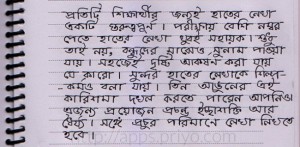 প্রতিটি শিক্ষার্থীর জন্যই হাতের লেখা
একটি গুরুত্বপূর্ণ। পরীক্ষায় বেশি নম্বর
পেতে হাতের লেখা খুবই সহায়ক। শুধু
তাই নয়, বন্ধুদের মাঝেও সুনাম পাওয়া
যায়। সহজেই দৃষ্টি আকর্ষণ করা যায়
যে কারো। সুন্দর হাতের লেখাকে শিল্প-
কর্মও বলা যায়। তিন আঙুলের এই
কারিশমা দখল করতে পারেন আপনিও
এজন্য প্রয়োজন প্রচন্ড ইচ্ছাশক্তি আর
ধৈর্য্য। সঙ্গে প্রচুর পরিমাণে লেখা লিখতে
হবে।